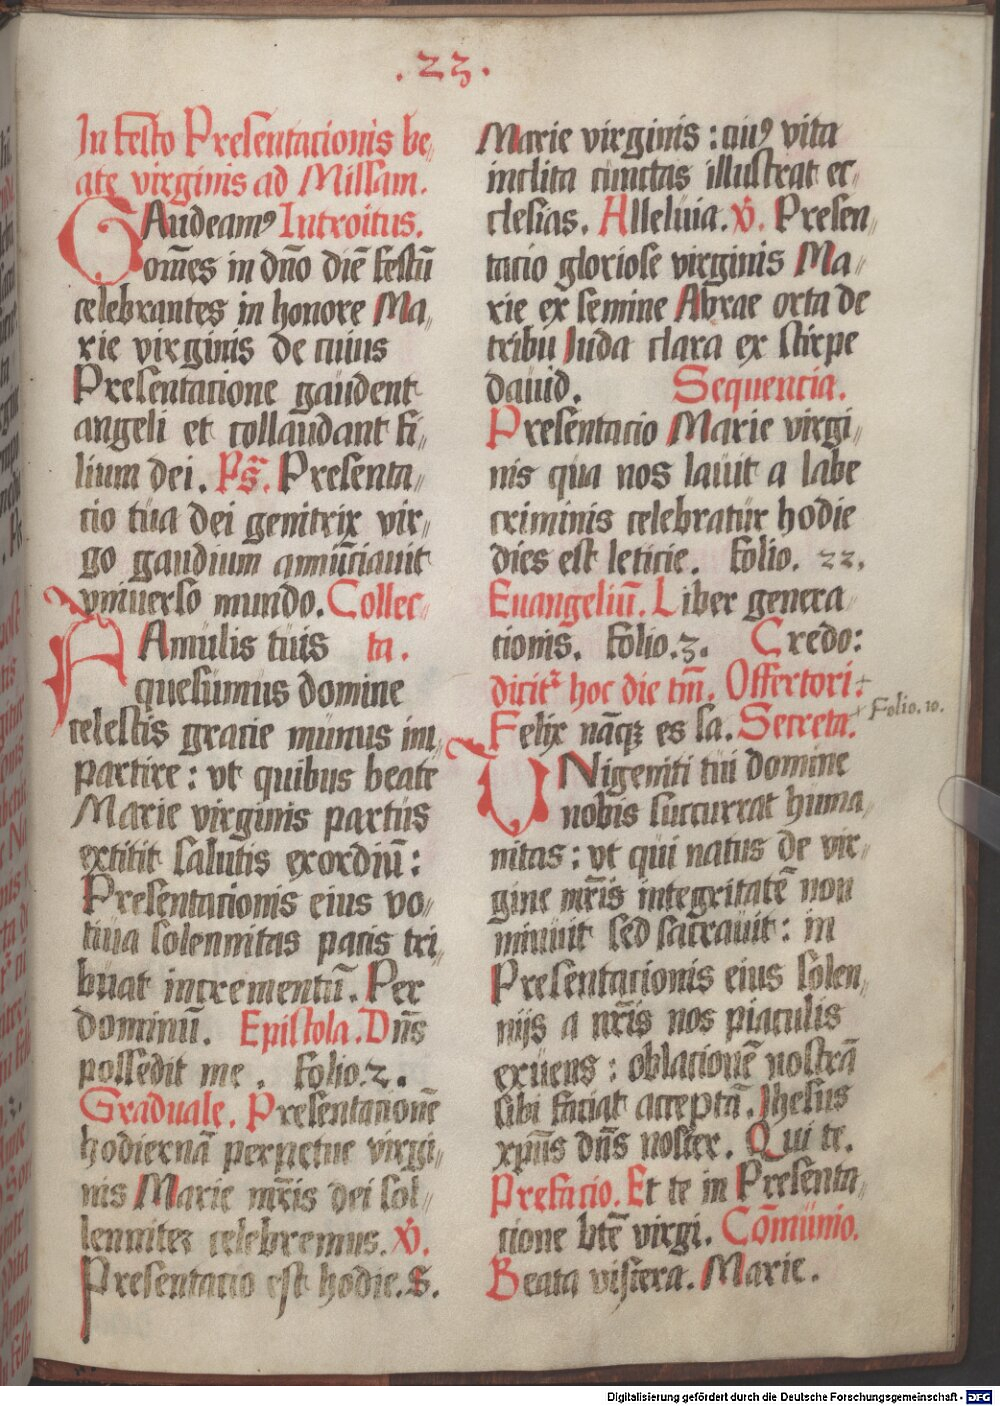 .23.
In festo Presentacionis be//
ate virginis ad Missam.
GAudeamꝰ Introitus.
om̄es in dn̄o diē festū
celebrantes in honore Ma//
rie virginis de cuius
Presentacione gaudent
angeli et collaudant fi//
lium dei. Ps̄. Presenta//
cio tua dei genitrix vir//
go gaudium annūciauit
vniuerso mundo. Collec//
FAmulis tuis ta.
quesumus domine
celestis gracie munus im//
partire: vt quibus beate
Marie virginis partus
extitit salutis exordiū:
Presentacionis eius vo//
tiua solennitas pacis tri//
buat incrementū. Per
dominū. Epistola. Dn̄s
possedit me. Folio.2.
Graduale. Presentacionē
hodiernā perpetue virgi//
nis Marie mr̄is dei sol//
lenniter celebremus. v̄.
Presentacio est hodie. S.
Marie virginis: cuiꝰ vita
inclita cunctas illustrat ec//
clesias. Alleluia. v̄. Presen//
tacio gloriose virginis Ma//
rie ex semine Abrae orta de
tribu Iuda clara ex stirpe
dauid. Sequencia.
Presentacio Marie virgi//
nis qua nos lauit a labe
criminis celebratur hodie
dies est leticie. Folio. 22.
Euangeliū. Liber genera//
cionis. Folio.3. Credo:
dicitr hoc die tm̄. Offertori:+
Felix nāqꝫ es sa. Secreta. + Folio.10.
VNigeniti tui domine
nobis succurrat huma//
nitas: vt qui natus de vir//
gine mr̄is integritatē non
minuit sed sacrauit: in
Presentacionis eius solen//
niis a nr̄is nos piaculis
exuens: oblacionē nostrā
sibi faciat acceptā. Ihesus
xp̄us dn̄s noster. Qui te.
Prefacio. Et te in Presenta//
cione btē virgi. Cōmunio.
Beata viscera. Marie.
Digitalisierung gefördert durch die Deutsche Forschungsgemeinschaft - DFG